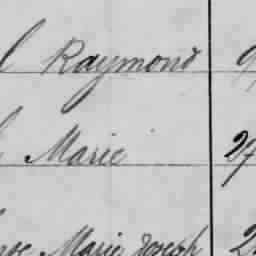 Raymond
Marie 27
Marie Joseph